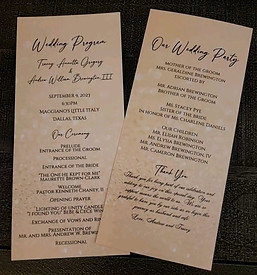 Wedding Program
Tracey Annette Gregory
&
Andrew William Brewington III
September 9, 2023
6:30pm
Maggiano's Little Italy
Dallas, Texas
Our Ceremony
Prelude
Entrance of the Groom
Processional
Entrance of the Bride
"The One He Kept for Me"
Maurette Brown Clark
Welcome
Pastor Kenneth Chaney, II
Opening Prayer
Lighting of Unity Candle
"I Found You" BeBe & CeCe Winans
Exchange of Vows and Rings
Presentation of
Mr. and Mrs. Andrew W. Brewington
Recessional
Our Wedding Party
Mother of the Groom
Mrs. Geraldine Brewington
Escorted By
Mr. Adrian Brewington
Brother of the Groom
Ms. Stacey Pye
Sister of the Bride
In Honor of Ms. Charlene Daniels
Our Children
Mr. Elijah Robinson
Ms. Elyssa Brewington
Mr. Andrew Brewington IV
Mr. Cameron Brewington
Thank You
Thank you for being part of our celebration and
adding to our joy on this special day. Your
love and support mean so much to us. We are so
grateful to have you by our side as we begin this
journey as husband and wife.
Love, Andrew and Tracey